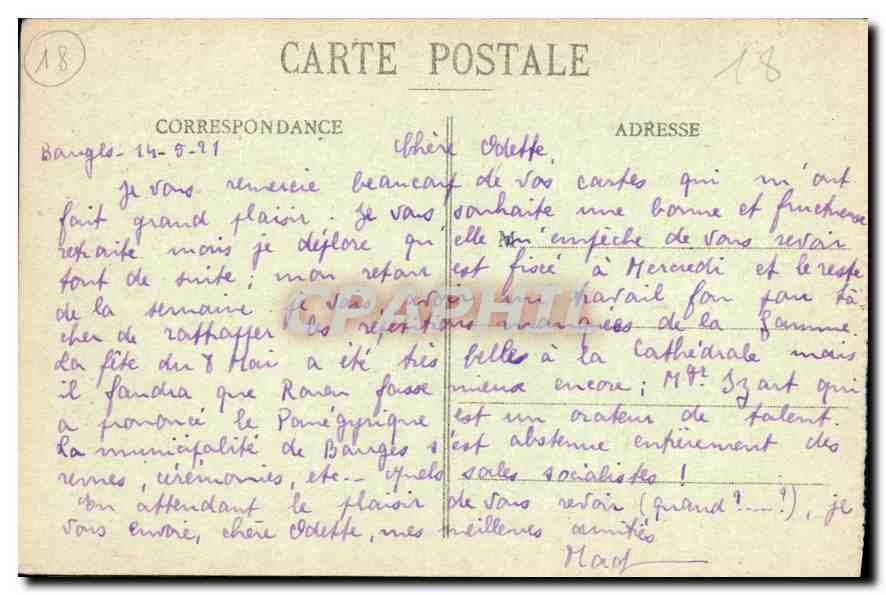 18
18
CARTE POSTALE
CORRESPONDANCE
ADRESSE
Bourges - 14-5-21 Chère Odette,
Je vous remercie beaucoup de vos cartes qui m'ont
fait grand plaisir. Je vous souhaite une bonne et fructueuse
retraite mais je déplore qu'elle m'empêche de vous revoir
tout de suite ; mon retour est fixé à Mercredi et le reste
de la semaine je vais avoir un travail fou pour tâ
cher de rattraper les répétitions manquées de la
La fête du 8 Mai a été très belle à la Cathédrale mais
il faudra que Rouen fasse mieux encore ; Mgr Izart qui
a prononcé le Panégyrique est un orateur de talent.
La municipalité de Bourges s'est abstenue entièrement des
cérémonies, etc... Quels sales socialistes !
En attendant le plaisir de vous revoir (quand ?.....?), je
vous envoie, chère Odette, mes meilleures amitiés
Mad
CPAPHIL